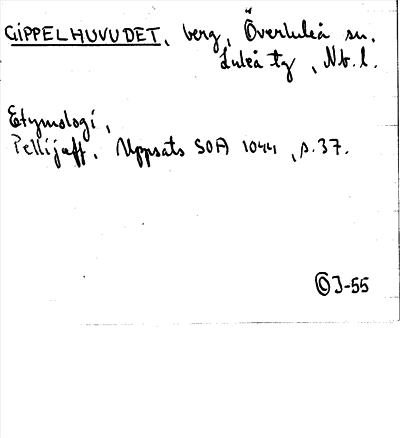 GIPPELHUVUDET, berg, Överluleå sn.
Luleå tg, Nb. l.
Etymologi,
Pellijeff, Uppsats SOA 1044, s. 37.
© J-55